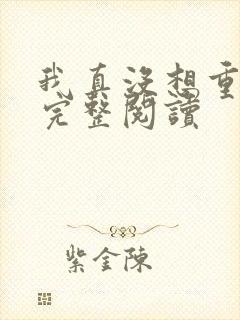 我真没想重
完整閱讀
紫金陳